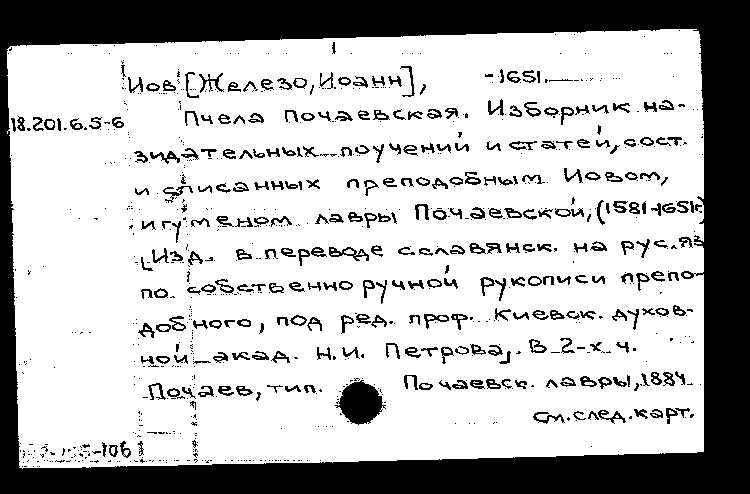 Иов [Железо, Иоанн], -1651.
18.201.6.5-6
Пчела Почаевская. Изборник на-
зидательных поучений и статей, сост.
и списанных преподобным Иовом,
игуменом лавры Почаевской, (1581-1651г.)
[Изд. в переводе с славянск. на рус. яз
по собственноручной рукописи препо-
добного, под ред. проф. Киевск. духов-
ной акад. Н.И. Петрова]. В 2-х ч.
Почаев, тип. Почаевск. лавры, 1884
см. след. карт.
-106